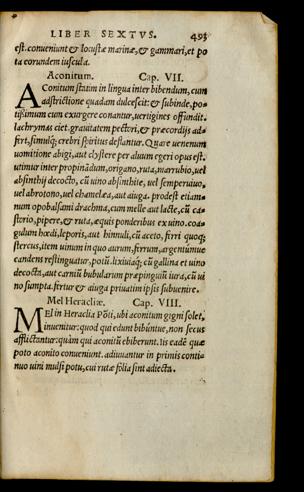 LIBER SEXTVS. 493
est. conueniunt & locustæ marinæ, & gammari, et po
ta eorundem iuscula.
Aconitum. Cap. VII.
AConitum statim in lingua inter bibendum, cum
adstrictione quadam dulcescit: & subinde, po-
tißimum cum exurgere conantur, uertigines offundit.
lachrymas ciet. grauitatem pectori, & præcordijs ad-
fert, simulq; crebri spiritus deflantur. Quare uenenum
uomitione abigi, aut clystere per aluum egeri opus est.
utimur inter propinãdum, origano, ruta, marrubio, uel
absinthij decocto, cũ uino absinthite, uel semperuiuo,
uel abrotono, uel chamelæa, aut aiuga. prodest etiam-
num opobalsami drachma, cum melle aut lacte, cũ ca-
storio, pipere, & ruta, æquis ponderibus ex uino. coa-
gulum hœdi, leporis, aut hinnuli, cũ aceto, ferri quoq;
stercus, item uinum in quo aurum, ferrum, argentũmue
candens restinguatur, potũ. lixiuiaq; cũ gallina et uino
decocta, aut carniũ bubularum præpinguiũ iura, cũ ui
no sumpta. fertur & aiuga priuatim ipsis subuenire.
Mel Heracliæ. Cap. VIII.
MEl in Heraclia Põti, ubi aconitum gigni solet,
inuenitur: quod qui edunt bibúntue, non secus
afflictantur: quàm qui aconitũ ebiberunt. iis eadẽ quæ
poto aconito conueniunt. adiuuantur in primis conti-
nuo uini mulsi potu, cui rutæ folia sint adiecta.